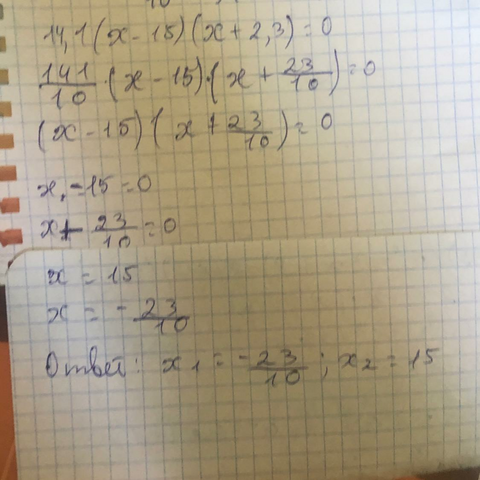 14,1(x-15)(x+2,3)=0
141/10 · (x-15)·(x+23/10)=0
(x-15)(x+23/10)=0
x-15=0
x+23/10=0
x=15
x=-23/10
Ответ: x₁=-23/10; x₂=15